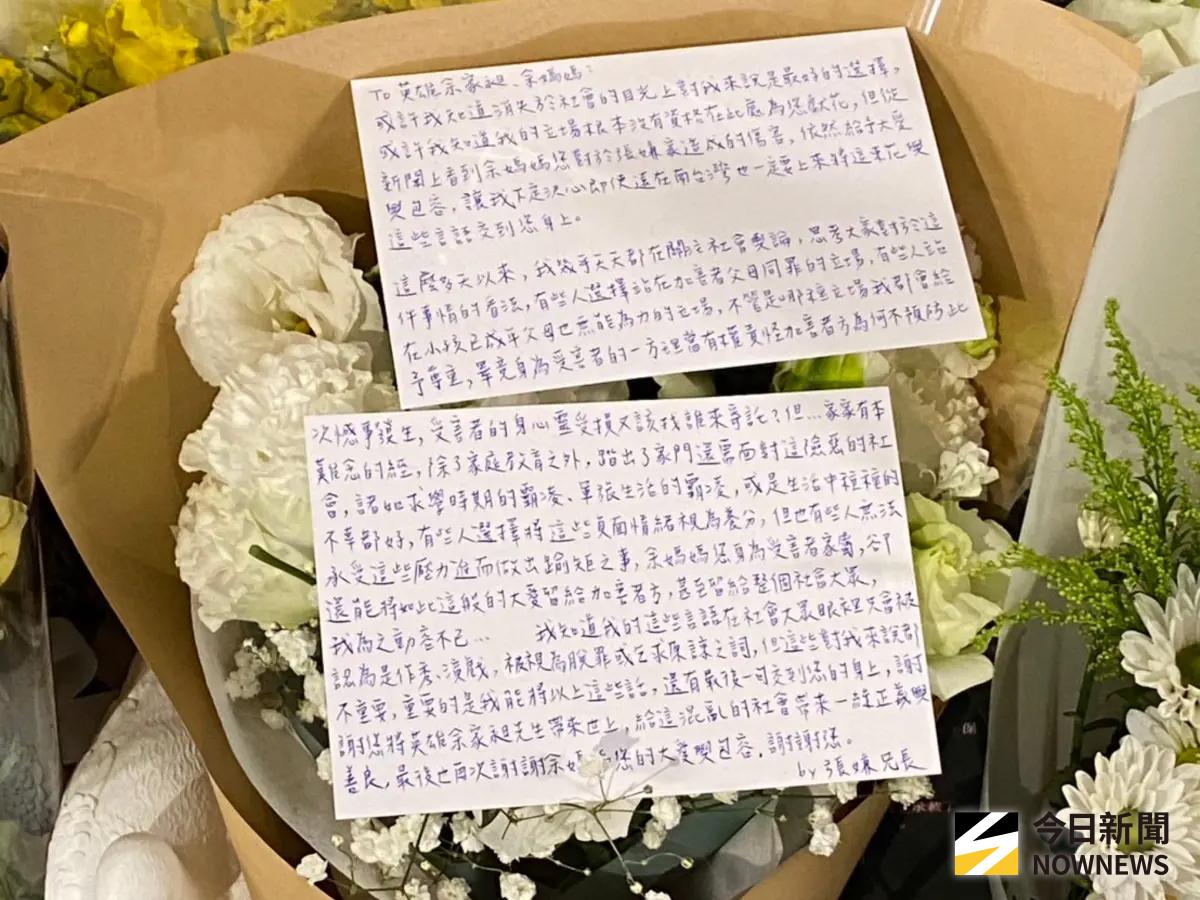 To 英雄余家昶、余媽媽：
或許我知道消失於社會的目光上對我來說是最好的選擇，
或許我知道我的立場根本沒有資格在此處為您獻花，但從
新聞上看到余媽媽您對於張嫌家造成的傷害，依然給予大愛
與包容，讓我下定決心即使遠在南台灣也一定要上來將這束花與
這些言語交到您身上。
這麼多天以來，我幾乎天天都在關注社會輿論，思考大家對於這
件事情的看法，有些人選擇站在加害者父母同罪的立場，有些人站
在小孩已成年父母也無能為力的立場，不管是哪種立場我都會給
予尊重，畢竟身為受害者的一方理當有權責怪加害者方為何不預防此
次憾事發生，受害者的身心靈受損又該找誰來寄託？但…家家有本
難念的經，除了家庭教育之外，踏出了家門還需面對這險惡的社
會，諸如求學時期的霸凌、軍旅生活的霸凌，或是生活中種種的
不幸都好，有些人選擇將這些負面情緒視為養分，但也有些人無法
承受這些壓力進而做出踰矩之事，余媽媽您身為受害者家屬，卻
還能將如此這般的大愛留給加害者方，甚至留給整個社會大眾，
我為之動容不已… 我知道我的這些言語在社會大眾眼裡只會被
認為是作秀、演戲，被視為脫罪或乞求原諒之詞，但這些對我來說都
不重要，重要的是我能將以上這些話，還有最後一句交到您的身上，謝
謝您將英雄余家昶先生帶來世上，給這混亂的社會帶來一絲正義與
善良，最後也再次謝謝余媽 您的大愛與包容，謝謝您。
by 張嫌兄長
今日新聞
NOWNEWS